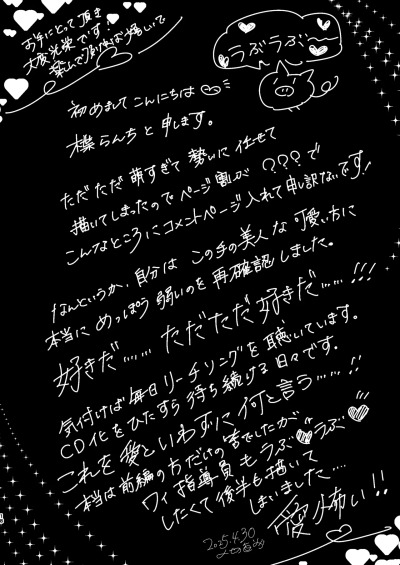 お手にとって頂き
大変光栄です!
楽しんで頂ければ幸いで
うぶうぶ
初めましてこんにちは
樸らんちと申します。
ただただ萌すぎて勢いに任せて
描いてしまったのでページ割が???で
こんなところにコメントページ入れて申し訳ないです!
なんというか、自分は この手の美人な可愛い方に
本当に めっぽう 弱いのを 再確認しました。
好きだ……ただただ好きだ……!!!
気付けば毎日リーチソングを聴いています。
CD化をひたすら待ち続ける日々です。
これを愛といわずに何と言う……!!
本当は前編の方だけの筈でしたが
ワイ指導員もうぶうぶ
したくて後半も描いて
しまいました…
愛怖い!!
2025.4.30